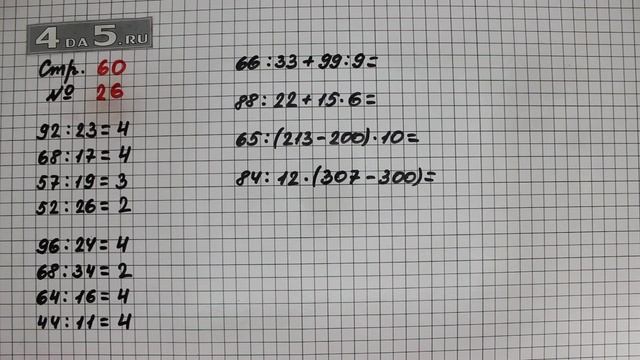 4DA5.RU
Стр. 60
№ 26
92:23=4
68:17=4
57:19=3
52:26=2
96:24=4
68:34=2
64:16=4
44:11=4
66:33+99:9=
88:22+15·6=
65:(213-200)·10=
84:12·(307-300)=